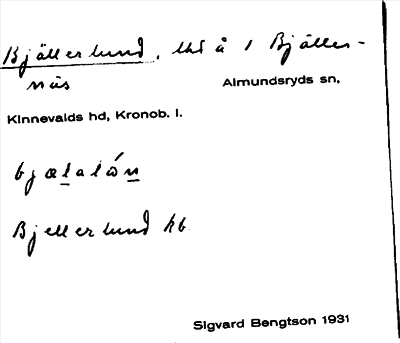 Bjällerlund, lht å 1 Bjäller-
näs Almundsryds sn,
Kinnevalds hd, Kronob. l.
bjælaló̤n
Bjellerlund kb
Sigvard Bengtson 1931